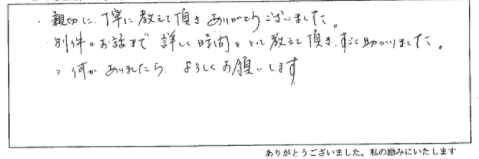 ・親切に、丁寧に教えて頂きありがとうございました。
別件のお話まで詳しく時間をとって教えて頂き、すごく助かりました。
何かありましたら、よろしくお願いします
ありがとうございました。私の励みにいたします